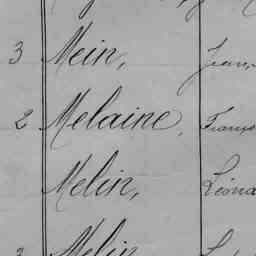 3 Mein, Jean,
2 Melaine, Franço
Melin, Léona
Melin